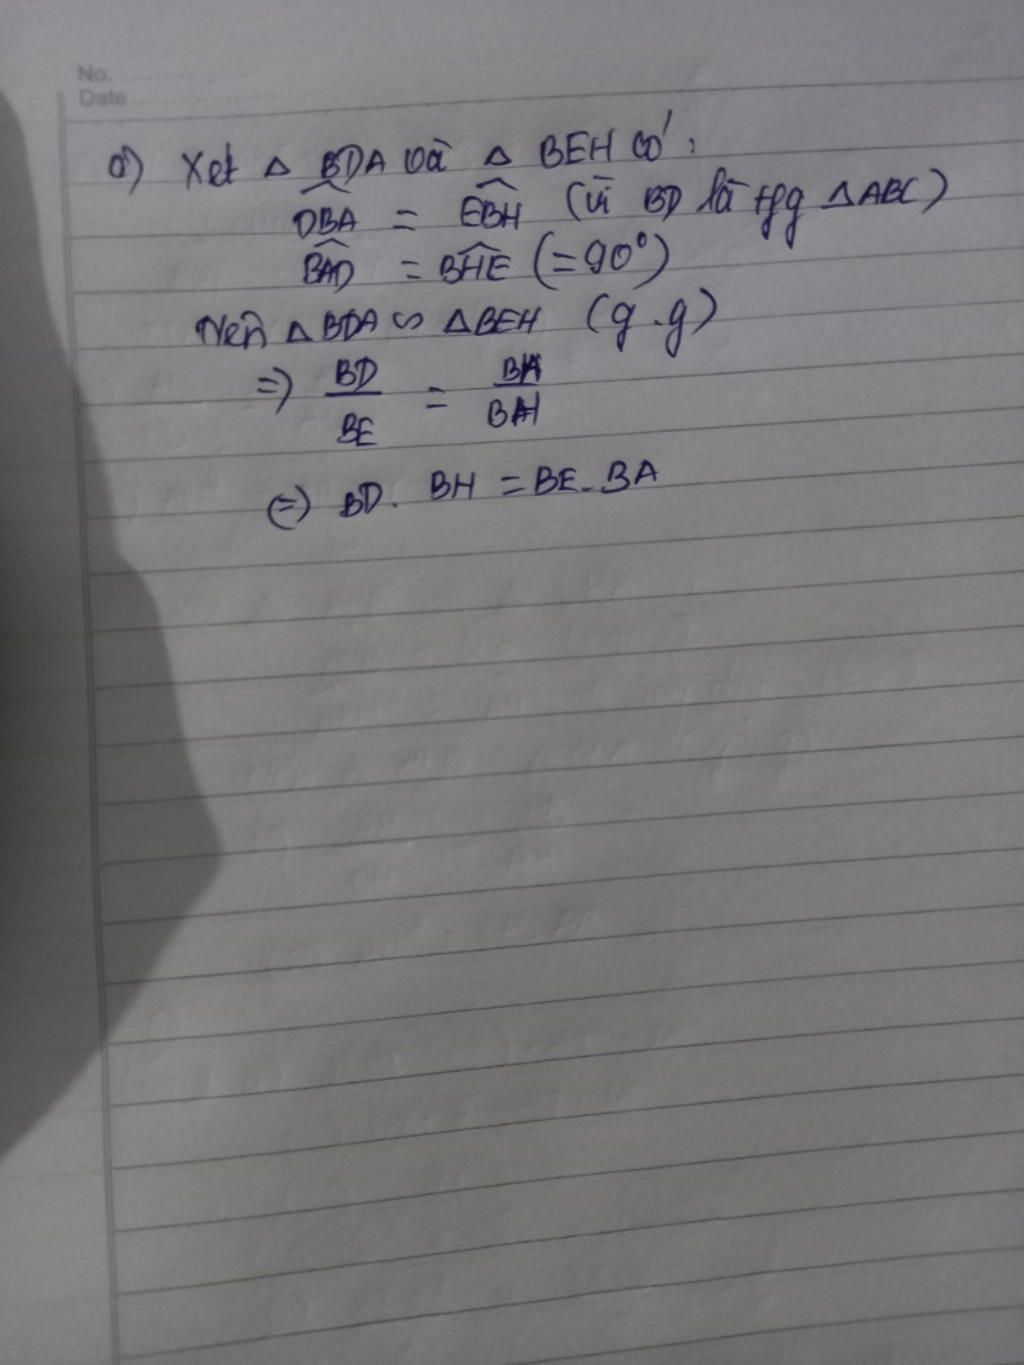 No.
Date
a) Xét Δ BDA và Δ BEH có:
\widehat{DBA} = \widehat{EBH} (vì BD là tpg ΔABC)
\widehat{BAD} = \widehat{BHE} (=90°)
Nên Δ BDA ∽ ΔBEH (g.g)
=> BD/BE = BA/BH
(=) BD. BH = BE. BA